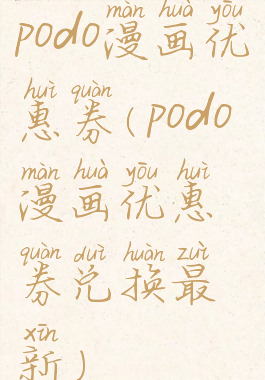 màn huà yōu
podo漫画优
huì quàn
惠券(podo
màn huà yōu huì
漫画优惠
quàn duì huàn zuì
券兑换最
xīn
新)